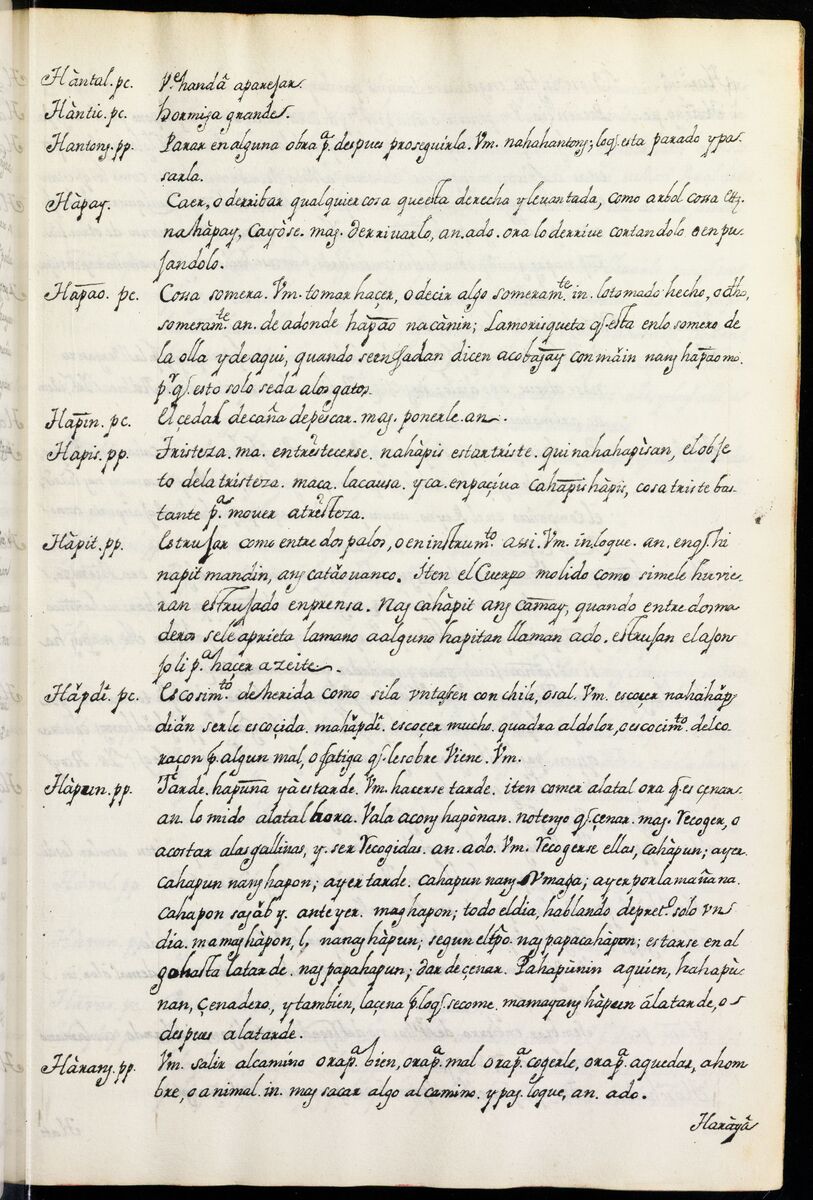 Hàntal. pc. Ve. handâ aparejar.
Hàntic. pc. hormiga grande.
Hantong. pp. Parar en alguna obra pa. despues proseguirla. Vm. nahahantong; loq. esta parado y pas-
sarla.
Hàpay. Caer, o derribar qualquier cosa que esta derecha y levantada, como arbol cossa etz.
nahàpay, cayòse. mag. derrivarlo, an. ado. ora lo derrive cortandolo o enpu-
jandolo.
Hapao. pc. Cossa somera. Vm. tomar haçer, o decir algo someramte. in. lo tomado hecho, o dho,
someramte. an. de adonde hapao na cànin; La morisqueta q. esta en lo somero de
la olla y de aqui, quando se enfadan dicen aco bagay con màin nang hapao mo.
pr. q. esto solo se dà a los gatos.
Hapin. pc. El çedal de caña de pescar. mag. ponerle. an.
Hapis. pp. Tristeza. ma. entristecerse. nahàpis estar triste. quinahahapìsan, el obje
to de la tristeza. maca. la causa. y ca. en paçiva cahapishàpis, cosa triste bas-
tante pa. mover a tristeza.
Hàpit. pp. Estrujar como entre dos palos, o en instrumto. assi. Vm. in. loque. an. en q. hi
napit mandin, ang catăouanco. Iten el Cuerpo molido como si me le huvie-
ran estrujado en prensa. Nag cahàpit ang camay, quando entre dos ma
deros se le aprieta la mano a alguno hapitan llaman ado. estrujan el ajon
joli pa. haçer azeite.
Hăpdi. pc. Escosimto. de herida como si la vntasen con chile, o sal. Vm. escoçer nahăhăp-
diăn serle escoçida. mahăpdi. escocer mucho. quadra al dolor, o escocimto. del co-
raçon p. algun mal, o fatiga q. le sobre Viene. Vm.
Hàpun. pp. Tarde. hapuna yà es tarde. Vm. hacerse tarde. iten comer a la tal ora q. es çenar.
an. lo mido a la tal hora. Vala acong hapònan. no tengo q. çenar. mag. recoger, o
acostar a las gallinas, y. ser recogidas. an. ado. Vm. recogerse ellas, cahàpun; ayer.
cahapun nang hapon; ayer tarde. cahapun nang Vmaga; ayer por la mañana.
cahapon sa jăb y. anteyer. maghapon; todo el dia, hablando de preto. solo vn
dia. mamaghàpon, l, nanaghàpun; segun el tpo. nag papacahàpon; estarse en al
go hasta la tarde. nag papahapun; dar de çenar. Pahapùnin a quien, hahapù-
nan, çenadero, y también, la çena p. loq. se come. mamayang hàpun á la tarde, o
despues a la tarde.
Hàrang. pp. Vm. salir al camino ora pa. bien, ora pa. mal ora pa. cogerle, ora pa. aquedar, a hom
bre, o animal. in. mag sacar algo al camino. y pag. loque, an. ado.
Haràyâ